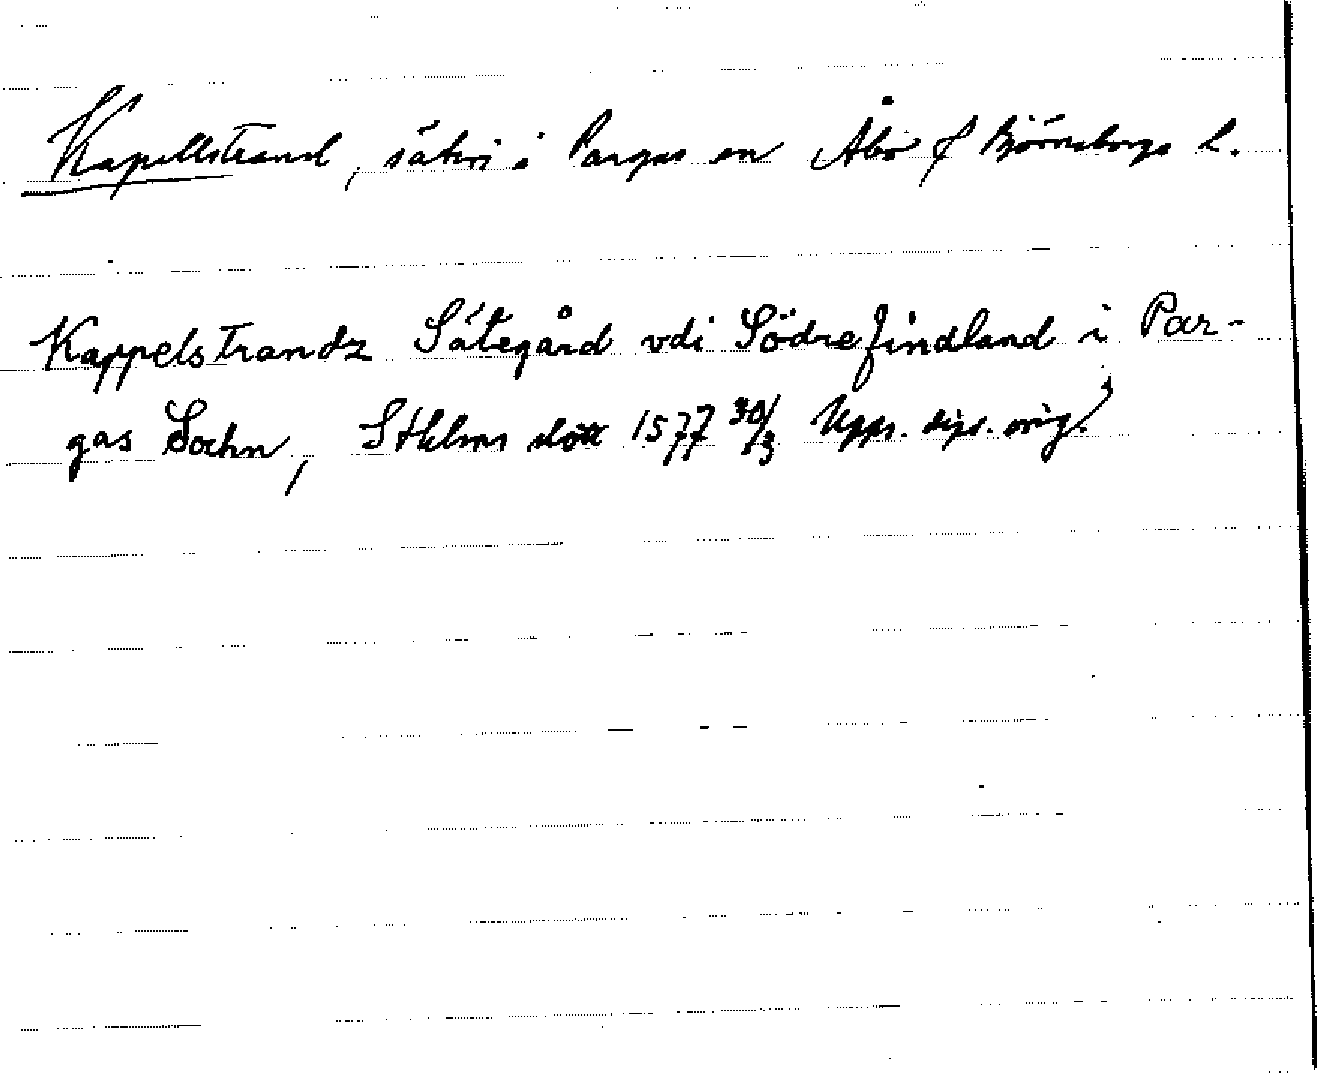 Kapellstrand, säteri i Pargas sn Åbo o. Björneborgs l.
Kappelstrandz Sätegård vdi Södrefindland i Par-
gas Sochn, Sthlms slott 1577 30/3 Upps. dipl. orig.